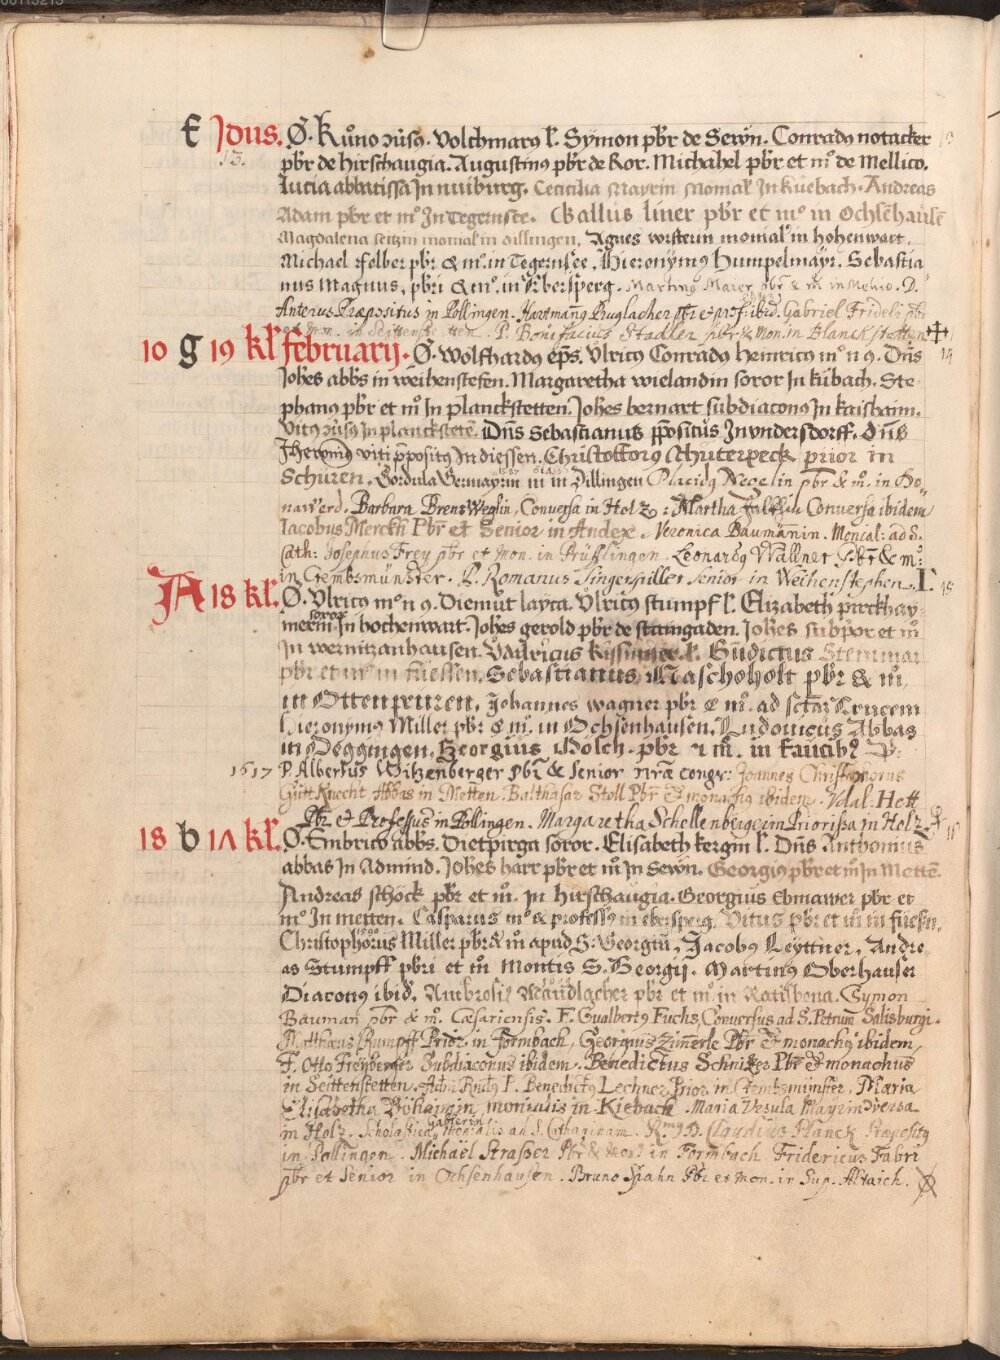 00115213
E Jdus. Ø. Kůno ɔůsꝯ. Volchmarꝯ l̃. Symon pbr̃ de Sewn̄. Conradꝯ notacker
13. pbr̃ de hirschaugia. Augustinꝯ pbr̃ de Ror. Michahel pbr̃ et m̊ de Mellico.
Lucia abbatissa Jn nuiburg. Cecicilia Mayrin Monial̃ Jn Kuebach. Andreas
Adam pbr̃ et m̊ Jn Tegernsee. Gallus liner pbr̃ et m̊ in Ochsēhausē
Magdalena seitzin monial̃ in dillingen. Agnes vorsterin monial̃ in hohenwart.
Michael Felber pbr̃ & m̊. in Tegernsee. Hieronymꝯ Humpelmayr. Sebastia
nus Magnus, pbr̃i & m̊. in Ebersperg. Martinꝯ Maier pbr̃ & m̃ in Melico. D.
Anterus Præpositus in Pollingen. Hartmanꝯ Pruglacher pbr̃ et prof: ibid. Gabriel Fridele pbr̃
et mon. in Seittenste tten. P. Bonifacius Stadler pbr̃ & Mon. in Blanckstetten
10 g 19 kl̃ february. Ø. Wolfhardꝯ ep̄s. Vlricꝯ Conradꝯ heinricꝯ m̊ n ꝯ. Dn̄s 14
Joh̃es abb̃s in weihenstefen. Margaretha wielandin soror Jn kübach. Ste
phanꝯ pbr̃ et m̊ Jn planckstetten. Joh̃es bernart subdiaconꝯ Jn kaishaim.
Vitꝯ ɔůsꝯ Jn planckstetē. Dn̄s Sebastianus p̄positus Jn vndersdorff. dn̄s
Jheronimꝯ viti p̄positꝯ Jn diessen. Christofforꝯ Schüterpeck prior in
Schüren. Gordula Germayrin m̃ in Dillingen Placidꝯ Negelin pbr̃ & m̃. in Do⸗
nawerd. Barbara Brens Weglin, Conversa in Holz: Martha Conversa ibidem
Iacobus Merckh Pbr̃ et Senior in Andex. Veronica Baumānin. Moncal: ad S.
Cath: Josephus Frey pbr̃ et Mon. in Prüfflingen. Leonardꝯ Wallner & m:
in Crembsmünster. P. Romanus Singerspiller senior in Weihenstephen.
A 18 kl̃. Ø. Vlricꝯ m̊ n ꝯ. Diemůt layca. Vlricꝯ stumpf l̃. Elizabeth pirckhay 15
merin soror Jn hochenwart. Joh̃es gerold pbr̃ de staingaden. Joh̃es subp̃or et m̊
Jn wernitzanhausen. Vdalricus l̃. Bn̄dictus Stemmar
pbr̃ et m̊ in füessen. Sebastianus Naschoholt pbr̃ & m̊,
in Ottenpeuren. Johannes wagner pbr̃ & m̊. ad sctā Crucem
hieronymꝯ Miller pbr̃ & m̊. in Ochsenhausen. Ludouicus Abbas
in Deggingen. Georgius Molch. pbr̃ ⁊ m̃. in faucibꝯ D:
1617 P. Albertus Witzenberger Pbr̃ & Senior nr̃æ congr: Joannes Christophorus
Guttknecht Abbas in Metten. Balthasar Stoll Pbr̃ & monachꝯ ibidem. Vdal: Hett
Pbr̃ & Professus in Pollingen. Margaretha Schellenbergerin Priorissa in Holz.
18 b 17 kl̃. Ø. Embrico abb̃s. Dietpirga soror. Elisabeth kergin l̃. Dn̄s Anthonius 16
abbas in Admund. Joh̃es harr pbr̃ et m̊ Jn Sewn̄. Georgiꝯ pbr̃ et m̊ Jn Mettē.
Andreas schöck pbr̃ et m̊. Jn hirschaugia. Georgius Ebmawer pbr̃ et
m̊ Jn metten. Casparus m̊ & professꝯ in ebersperg. Vitus pbr̃ et m̃ in füessn.
Christophorus Miller pbr̃ & m̊ apud S: Georgiū, Jacobꝯ Leyttner, Andre⸗
as Stumpff pbr̃i et m̊ Montis S. Georgij. Martinꝯ Oberhauser
Diaconꝯ ibid̃. Ambrosiꝯ Mändlacher pbr̃ et m̊. in Ratisbona. Symon
Bauman pbr̃ & m̊. Cæsariensis. F. Gualbertꝯ Fuchs, Conversus ad S. Petrum Salisburgi.
Matthæus Rumpff Prior in Formbach, Georgius Zimerle Pbr̃ & monachꝯ ibidem
F. Otto Freyberger Subdiaconus ibidem. Benedictus Schnizer Pbr̃ & monachus
in Seittenstetten. Adm Rndꝯ P. Benedictꝯ Lechner Prior in Crembsmünster. Maria
Elisabetha Böhaimin, monialis in Kiebach. Maria Vrsula Mayrin Dversa
in Holz. Scholastica Gasserin Monialis ad S. Catharinam. Rmꝯ D. Claudius Planck Præpositꝯ
in Pollingen. Michäel Strasser Pbr̃ & Mon: in Formbach Fridericus Fabri
pbr̃ et Senior in Ochsenhausen. Bruno Spahn Pbr̃ et Mon. in Sup. Altaich.